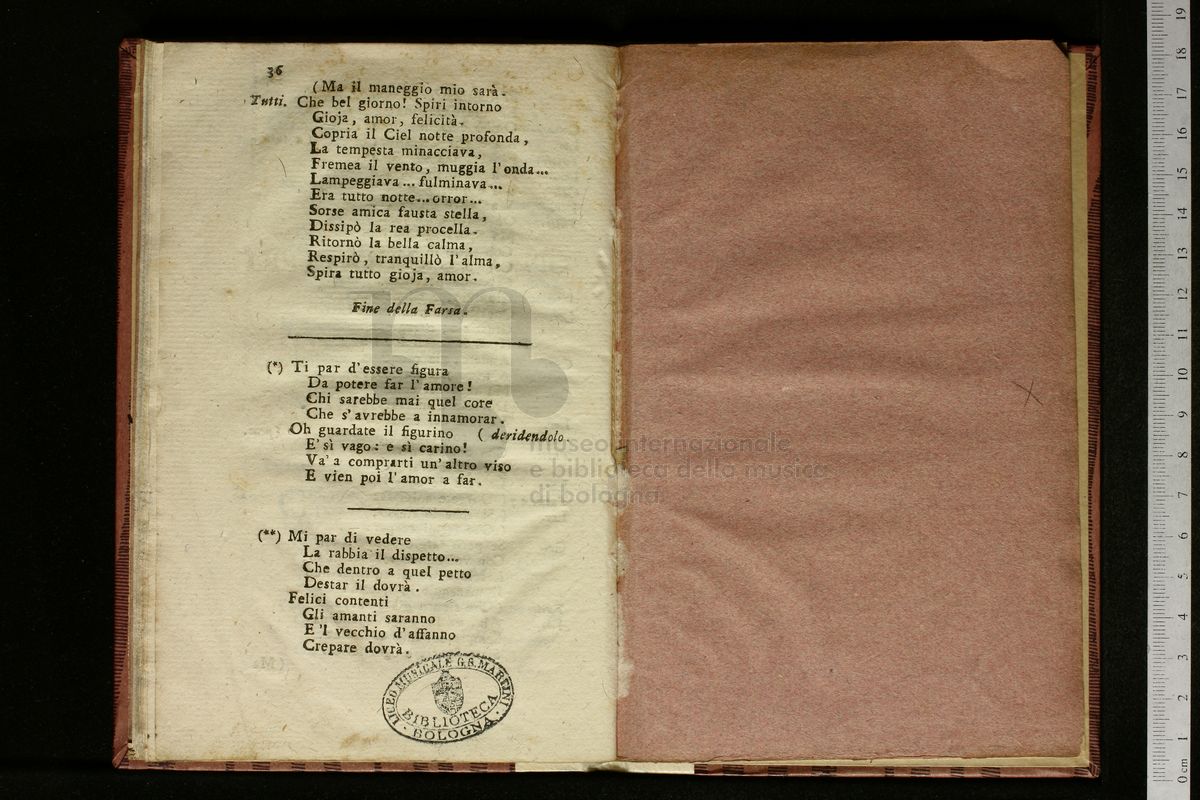 36
(Ma il maneggio mio sarà.
Tutti. Che bel giorno! Spiri intorno
Gioja, amor, felicità.
Copria il Ciel notte profonda,
La tempesta minacciava,
Fremea il vento, muggia l'onda...
Lampeggiava... fulminava...
Era tutto notte... orror...
Sorse amica fausta stella,
Dissipò la rea procella.
Ritornò la bella calma,
Respirò, tranquillò l'alma,
Spira tutto gioja, amor.
Fine della Farsa.
(*) Ti par d'essere figura
Da potere far l'amore!
Chi sarebbe mai quel core
Che s'avrebbe a innamorar.
Oh guardate il figurino ( deridendolo.
E' sì vago: e sì carino!
Va' a comprarti un'altro viso
E vien poi l'amor a far.
(**) Mi par di vedere
La rabbia il dispetto...
Che dentro a quel petto
Destar il dovrà.
Felici contenti
Gli amanti saranno
E 'l vecchio d'affanno
Crepare dovrà.
LICEO MUSICALE G.B. MARTINI
BIBLIOTECA
BOLOGNA
m
museo internazionale
e biblioteca della musica
di bologna
0 cm 1 2 3 4 5 6 7 8 9 10 11 12 13 14 15 16 17 18 19